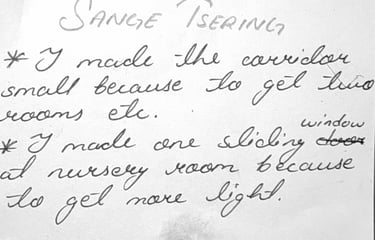 SANGE TSERING
* I made the corridor
small because to get two
rooms etc.
window
* I made one sliding door
at nursery room because
to get more light.